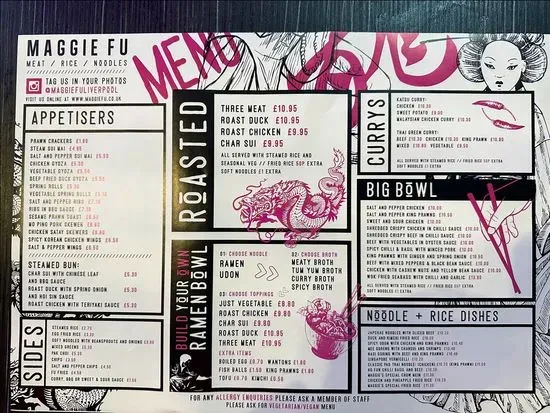 MAGGIE FU
MEAT / RICE / NOODLES
TAG US IN YOUR PHOTOS
@MAGGIEFULIVERPOOL
VISIT US ONLINE AT WWW.MAGGIEFU.CO.UK
MENU
APPETISERS
PRAWN CRACKERS £1.80
STEAM SUI MAI £4.95
SALT AND PEPPER SUI MAI £5.50
CHICKEN GYOZA £5.50
VEGETABLE GYOZA £5.50
DEEP FRIED DUCK GYOZA £5.50
SPRING ROLLS
VEGETABLE SPRING ROLLS
SALT AND PEPPER RIBS
RIBS IN BBQ SAUCE
SESAME PRAWN TOAST
WO PING PORK SKEWER
CHICKEN SATAY SKEWERS
SPICY KOREAN CHICKEN WINGS
SALT & PEPPER WINGS
STEAMED BUN:
CHAR SUI WITH CHINESE LEAF
AND BBQ SAUCE £5.30
ROAST DUCK WITH SPRING ONION
AND HOI SIN SAUCE £5.30
ROAST CHICKEN WITH TERIYAKI SAUCE £5.30
SIDES
STEAMED RICE £2.70
EGG FRIED RICE
SOFT NOODLES WITH BEANSPROUTS AND ONIONS
MIXED GREENS
PAK CHOI
CHIPS
SALT AND PEPPER CHIPS
SF FRIES
CURRY, BBQ OR SWEET & SOUR SAUCE
ROASTED
THREE MEAT £10.95
ROAST DUCK £10.95
ROAST CHICKEN £9.95
CHAR SUI £9.95
ALL SERVED WITH STEAMED RICE AND
SEASONAL VEG // FRIED RICE 50P EXTRA
SOFT NOODLES £1 EXTRA
BUILD YOUR OWN
RAMEN BOWL
01: CHOOSE NOODLE
RAMEN
UDON
02: CHOOSE BROTH
MEATY BROTH
TUM YUM BROTH
CURRY BROTH
SPICY BROTH
03: CHOOSE TOPPINGS
JUST VEGETABLE £9.80
ROAST CHICKEN £9.80
CHAR SUI £9.80
ROAST DUCK £10.95
THREE MEAT £10.95
EXTRA ITEMS
BOILED EGG £0.70 WANTONS £1.80
FISH BALLS £1.50 KING PRAWN £1.80
TOFU £0.70 KIMCHI £0.50
CURRYS
KATSU CURRY:
CHICKEN £10.30
SWEET POTATO £9.80
MALAYSIAN CHICKEN CURRY £10.30
THAI GREEN CURRY:
BEEF £10.30 CHICKEN £10.30 KING PRAWN £10.90
MIXED £10.80 VEGETABLE £9.50
ALL SERVED WITH STEAMED RICE // FRIED RICE 50P EXTRA
SOFT NOODLES £1 EXTRA
BIG BOWL
SALT AND PEPPER CHICKEN
SALT AND PEPPER KING PRAWNS
SWEET AND SOUR CHICKEN
SHREDDED CRISPY CHICKEN IN CHILLI SAUCE
SHREDDED CRISPY BEEF IN CHILLI SAUCE
BEEF WITH VEGETABLES IN OYSTER SAUCE
SPICY CHILLI & BASIL WITH MINCED PORK
KING PRAWNS WITH GINGER AND SPRING ONION
BEEF WITH MIXED PEPPERS & BLACK BEAN SAUCE
CHICKEN WITH CASHEW NUTS AND YELLOW BEAN SAUCE
WOK FRIED SEAFOOD WITH CHILLI AND GARLIC
ALL SERVED WITH STEAMED RICE // FRIED RICE 50P EXTRA
SOFT NOODLES £1 EXTRA
NOODLE + RICE DISHES
JAPANESE NOODLES WITH SLICED BEEF
DUCK AND KIMCHI FRIED RICE
SPICY UDON WITH CHICKEN AND KING PRAWN
MEE GORENG WITH CHICKEN AND SHRIMPS
NASI GORENG WITH BEEF AND KING PRAWN
SINGAPORE VERMICELLI
HO FUN CHILLI BASIL AND BEEF
MAGGIE'S SPECIAL CHOW MEIN
CHICKEN AND PINEAPPLE FRIED RICE
MAGGIE'S SPECIAL FRIED RICE
FOR ANY ALLERGY ENQUIRIES PLEASE ASK A MEMBER OF STAFF
PLEASE ASK FOR VEGETARIAN/VEGAN MENU